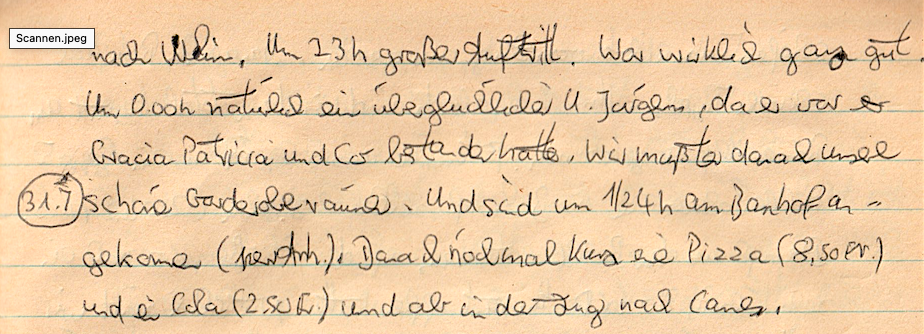 Scannen.jpeg
nach Um 23h großer Auftritt. War wirklich ganz gut.
Um 0.00h natürlich ein überglücklicher U. Jürgens, da er vor
Gracia Patricia und Co hatte. Wir mußten danach unsere
31.7 schöne Garderobe räumen. Und sind um 1/24h am Banhof an-
gekommen Danach nochmal kurz eine Pizza (8,50Fr.)
und ein Cola (2.50Fr.) und ab in den Zug nach Canes.